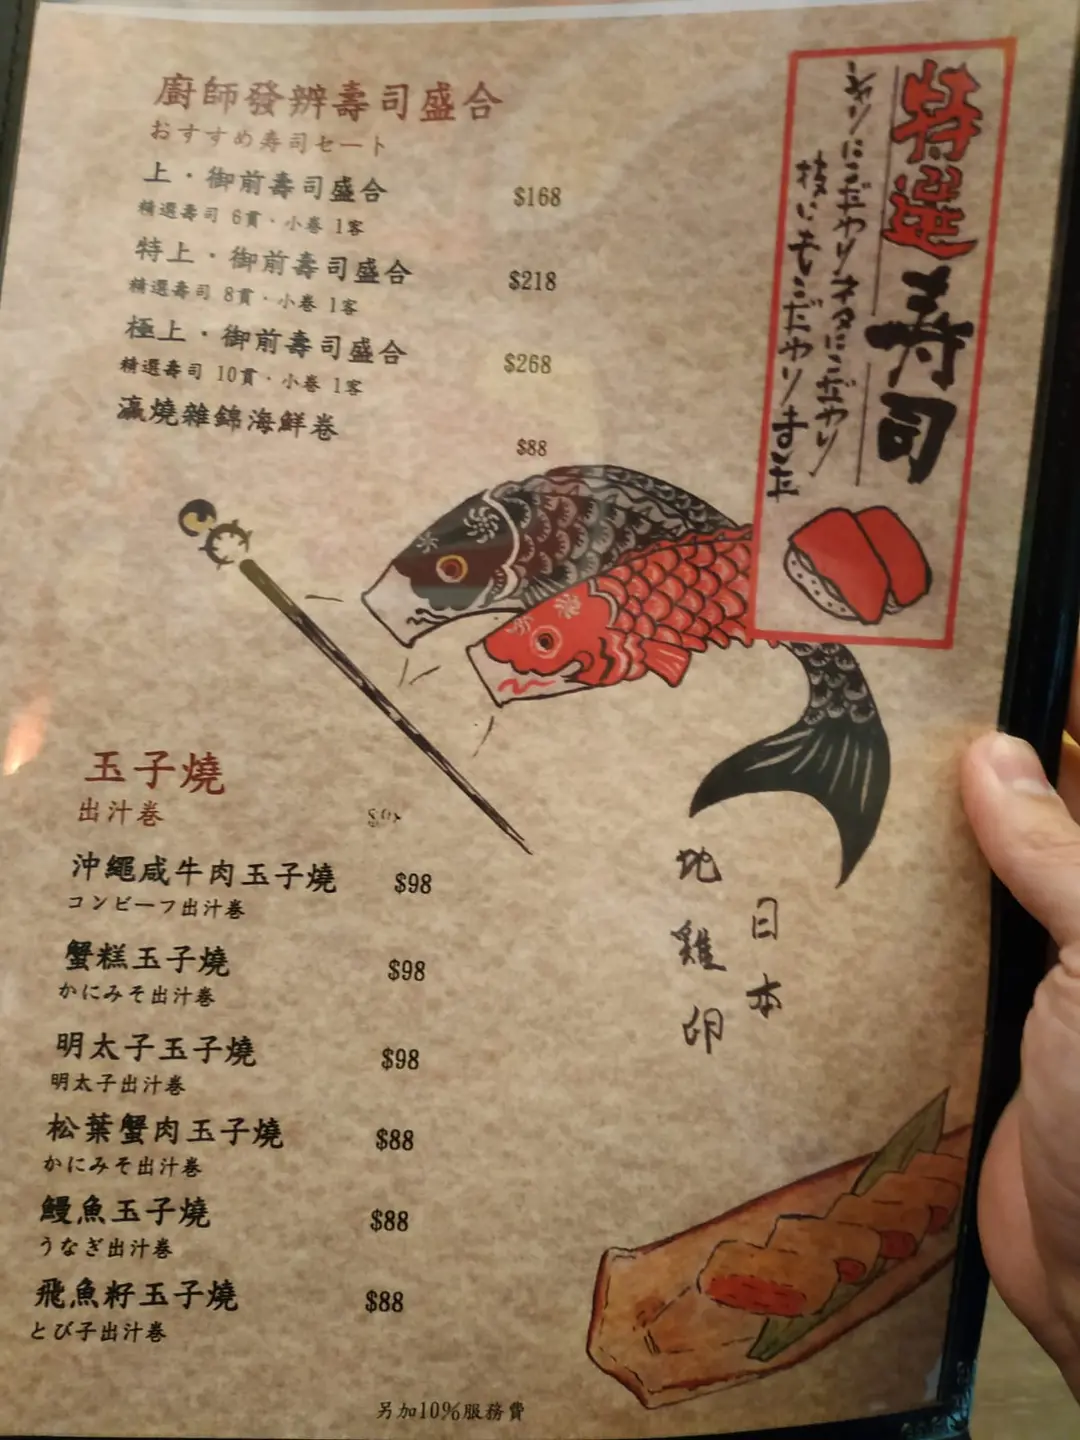 廚師發辦壽司盛合
おすすめ寿司セート
上·御前壽司盛合 $168
精選壽司 6貫·小巻 1客
特上·御前壽司盛合 $218
精選壽司 8貫·小巻 1客
極上·御前壽司盛合 $268
精選壽司 10貫·小巻 1客
瀛燒雜錦海鮮卷 $88
特選寿司
シャリにこだわりネタにこだわり
技にもこだわりました
玉子燒
出汁巻
沖繩咸牛肉玉子燒 $98
コンビーフ出汁巻
蟹糕玉子燒 $98
かにみそ出汁巻
明太子玉子燒 $98
明太子出汁巻
松葉蟹肉玉子燒 $88
かにみそ出汁巻
鰻魚玉子燒 $88
うなぎ出汁巻
飛魚籽玉子燒 $88
とび子出汁巻
日本
地雞卵
另加10%服務費